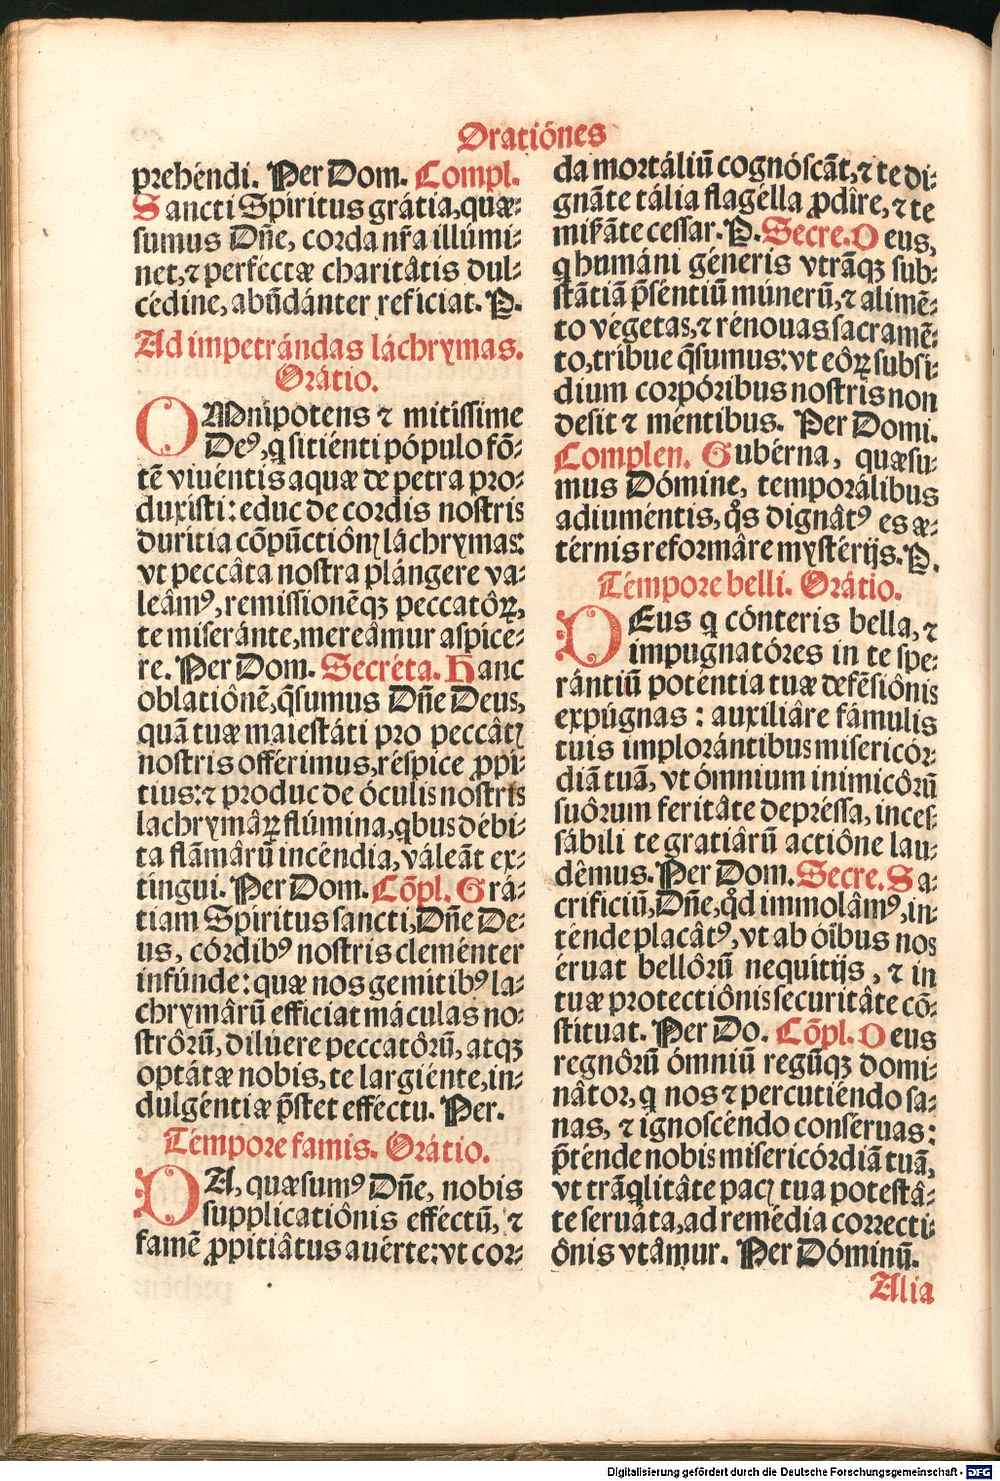 Oratiónes
prehéndi. Per Dom. Compl.
Sancti Spíritus grátia, quæ-
sumus Dñe, corda nr̃a illúmi-
net, ⁊ perféctæ charitâtis dul-
cédine, abũdánter refíciat. P.
Ad impetrándas láchrymas.
Orátio.
OMnípotens ⁊ mitíssime
Deꝰ, q̇ sitiénti pópulo fõ-
tẽ viuéntis aquæ de petra pro-
duxísti: educ de cordis nostris
durítia cõpũctiônꝭ láchrymas:
vt peccâta nostra plángere va-
leâmꝰ, remissionẽqꝫ peccatôꝝ,
te miseránte, mereâmur aspíce-
re. Per Dom. Secréta. Hanc
oblatiônẽ, q̃sumus Dñe Deus,
quã tuæ maiestáti pro peccâtꝭ
nostris offérimus, réspice ꝓpí-
tius: ⁊ produc de óculis nostris
lachrymâꝝ flúmina, q̇bus débi-
ta flãmârũ incéndia, váleãt ex-
tíngui. Per Dom. Cõpl. Grá-
tiam Spíritus sancti, Dñe De-
us, córdibꝰ nostris cleménter
infúnde: quæ nos gemítibꝰ la-
chrymârũ effíciat máculas no-
strôrũ, dilúere peccatôrũ, atqꝫ
optátæ nobis, te largiénte, in-
dulgéntiæ p̃stet efféctu. Per.
Témpore famis. Orátio.
DA, quæsumꝰ Dñe, nobis
supplicatiônis efféctũ, ⁊
famẽ ꝓpitiâtus auérte: vt cor-
da mortáliũ cognóscãt, ⁊ te di-
gnãte tália flagélla ꝓdîre, ⁊ te
mis̃ãte cessar. P. Secre. Deus,
q̇ humáni géneris vtrãqꝫ sub-
stãtiã p̃séntiũ múnerũ, ⁊ alimẽ-
to végetas, ⁊ rénouas sacramẽ-
to, tríbue q̃sumus: vt eôꝝ subsí-
dium corpóribus nostris non
desit ⁊ méntibus. Per Domi.
Complen. Gubérna, quæsu-
mus Dómine, temporálibus
adiuméntis, q̊s dignâtꝰ es æ-
térnis reformâre mystérijs. P.
Témpore belli. Orátio.
DEus q̇ cónteris bella, ⁊
impugnatóres in te spe-
rántiũ poténtia tuæ defẽsiônis
expúgnas: auxiliâre fámulis
tuis implorántibus misericór-
diã tuã, vt ómnium inimicôrũ
suôrum feritâte depréssa, incef-
sábili te gratiârũ actiône lau-
dêmus. Per Dom. Secre. Sa-
crifíciũ, Dñe, q̊d immolâmꝰ, in-
ténde placâtꝰ, vt ab oĩbus nos
éruat bellôrũ nequítijs, ⁊ in
tuæ protectiônis securitâte cõ-
stítuat. Per Do. Cõpl. Deus
regnôrũ ómniũ regũqꝫ domi-
nâtor, q̇ nos ⁊ percutiéndo sa-
nas, ⁊ ignoscéndo conséruas:
p̃tende nobis misericórdiã tuã,
vt trãq̇llitâte pacꝭ tua potestâ-
te seruâta, ad remédia correcti-
ônis vtâmur. Per Dóminũ.
Alia
Digitalisierung gefördert durch die Deutsche Forschungsgemeinschaft - DFG